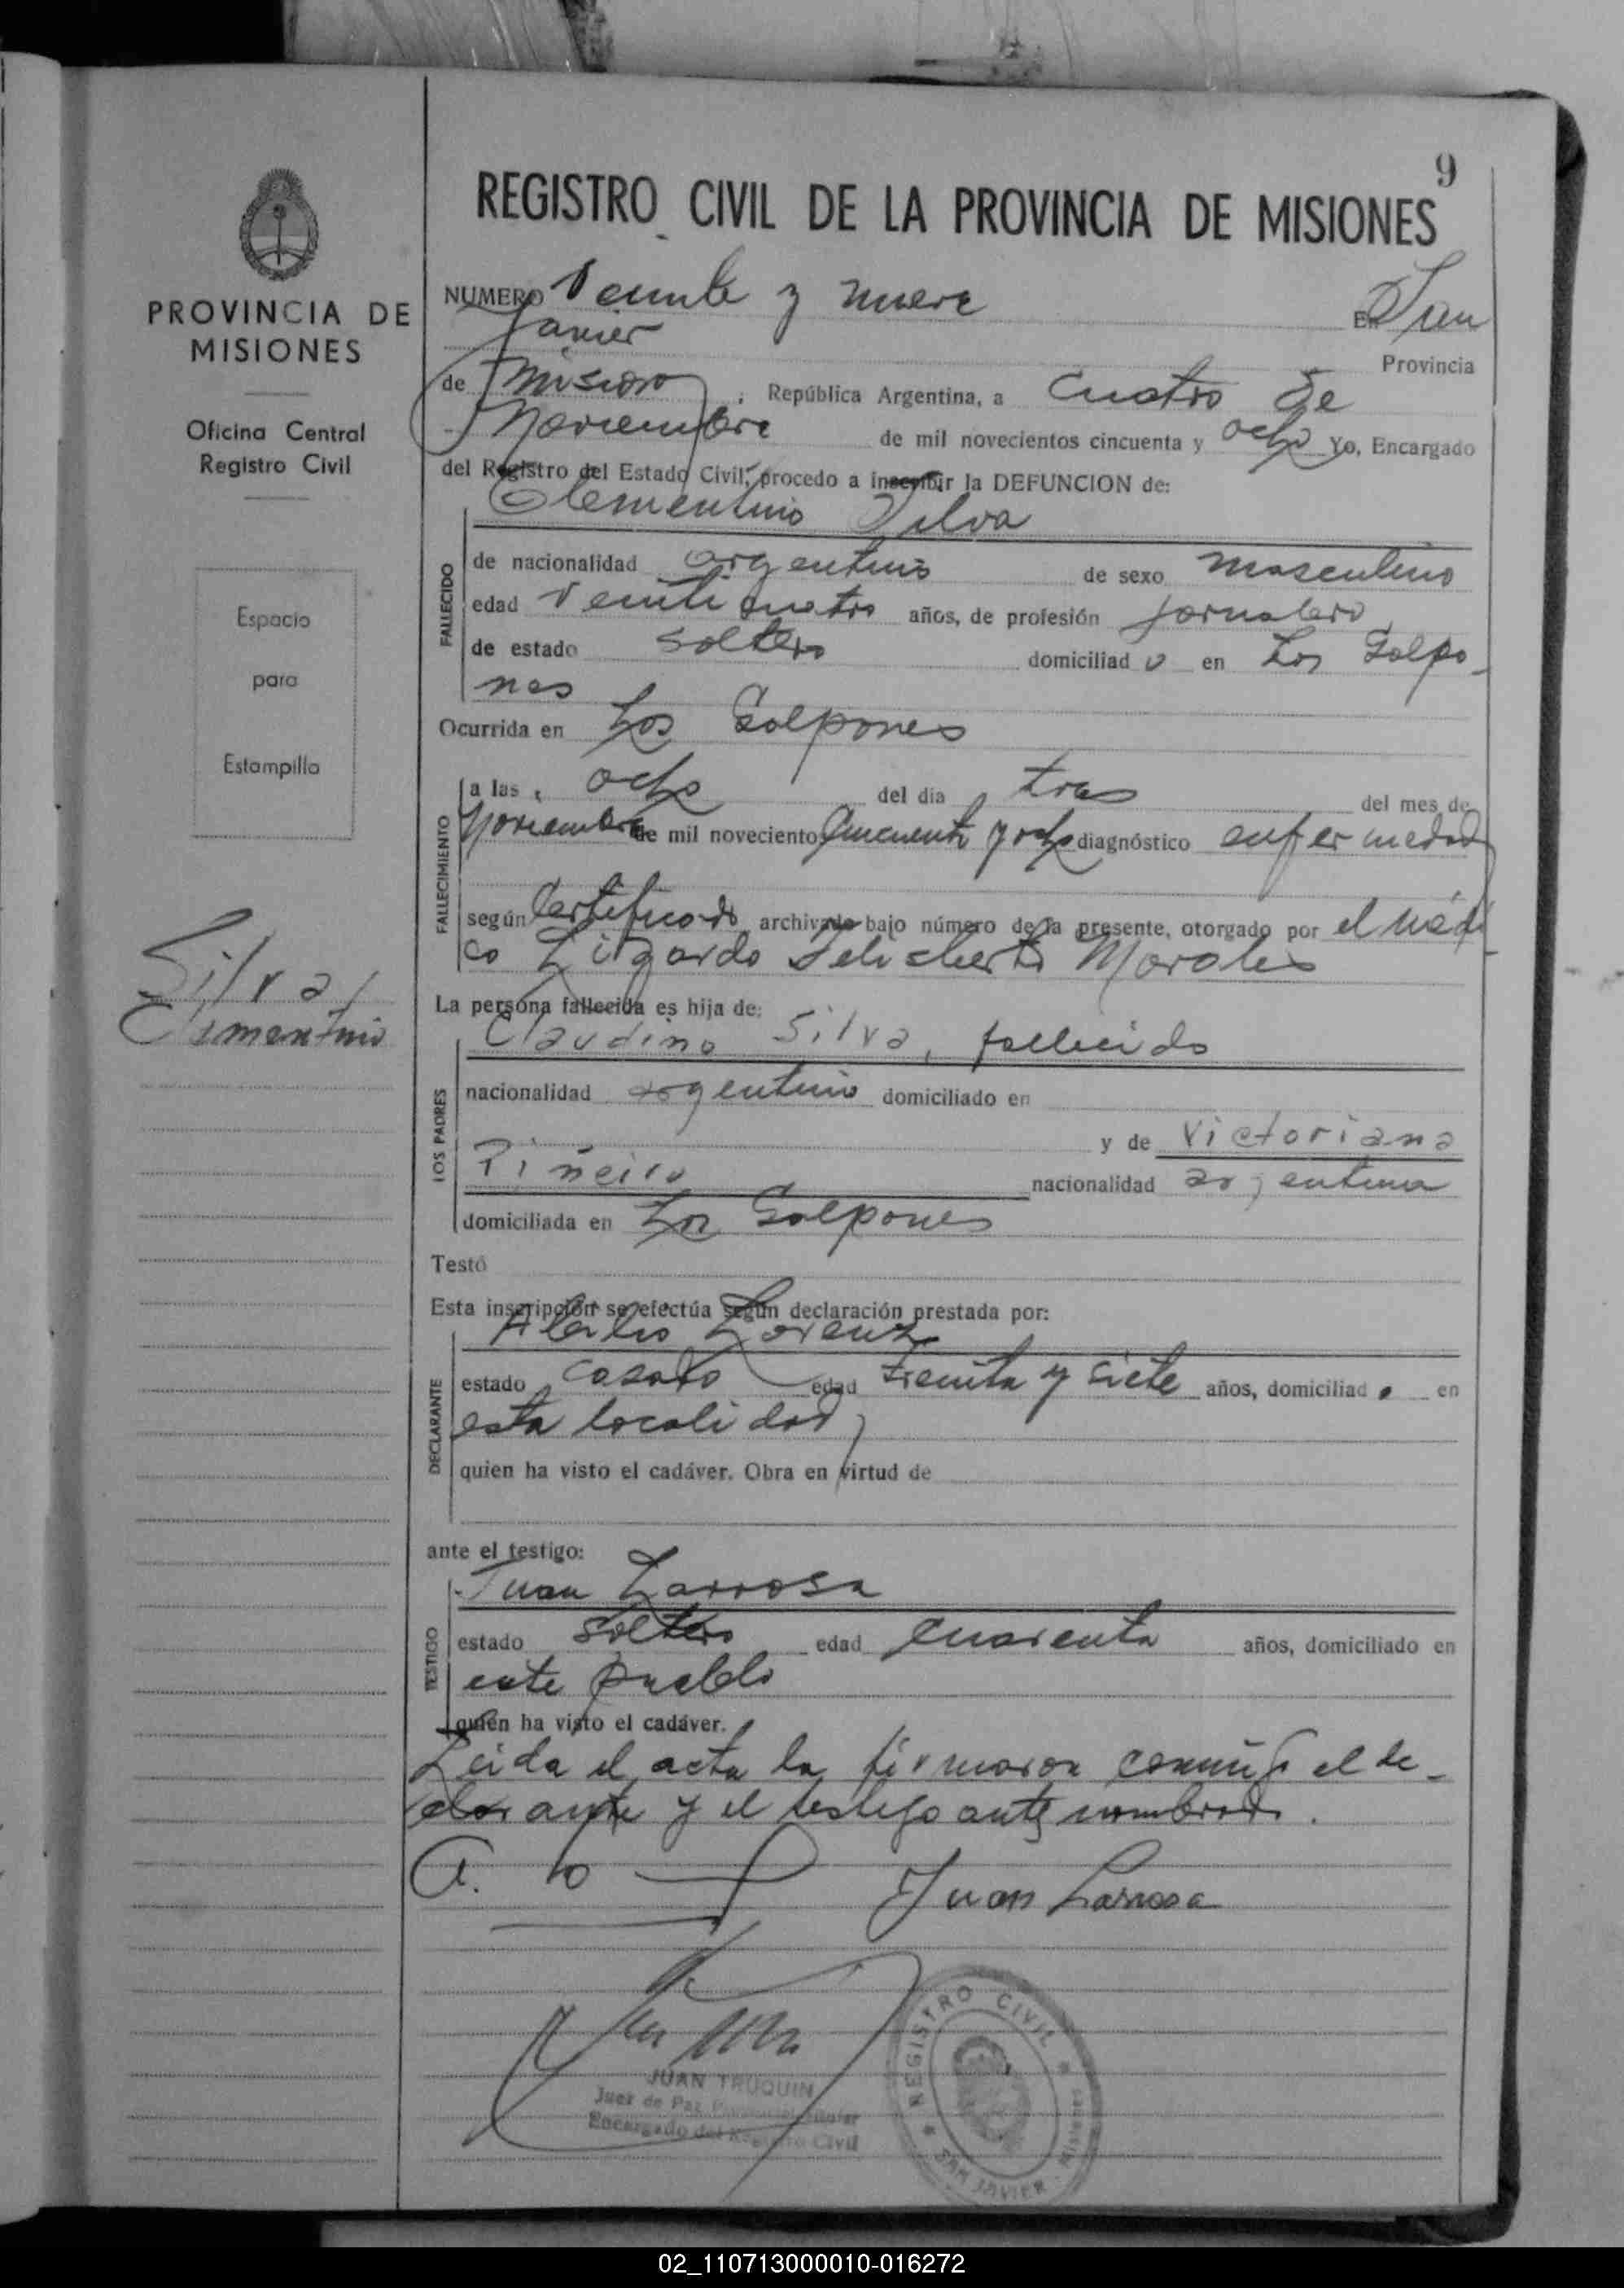 9
REGISTRO CIVIL DE LA PROVINCIA DE MISIONES
PROVINCIA DE
MISIONES
Oficina Central
Registro Civil
Espacio
para
Estampilla
Silva,
Clementino
NUMERO Veinte y nueve En San
Javier Provincia
de Misiones, República Argentina, a cuatro de
Noviembre de mil novecientos cincuenta y ocho Yo, Encargado
del Registro del Estado Civil, procedo a inscribir la DEFUNCION de:
Clementino Silva
FALLECIDO
de nacionalidad argentino de sexo masculino
edad veinticuatro años, de profesión jornalero,
de estado soltero domiciliad o en Los Galpo-
nes
Ocurrida en Los Galpones
FALLECIMIENTO
a las ocho del día tres del mes de
Noviembre de mil novecientos cincuenta y ocho diagnóstico enfermedad
según Certificado archivado bajo número de la presente, otorgado por el médi
co Lizardo Morales
La persona fallecida es hija de:
LOS PADRES
Claudino Silva, fallecido
nacionalidad argentino domiciliado en
y de Victoriana
Piñeiro nacionalidad argentina
domiciliada en Los Galpones
Testó
Esta inscripción se efectúa según declaración prestada por:
DECLARANTE
Lorenzo
estado casado edad treinta y siete años, domiciliad o en
esta localidad
quien ha visto el cadáver. Obra en virtud de
ante el testigo:
TESTIGO
Juan Larrosa
estado soltero edad cuarenta años, domiciliado en
este pueblo
quien ha visto el cadáver.
Leida el acta la firmaron conmigo el de-
clarante y el testigo ante nombrado.
Juan Larrosa
JUAN TRUQUIN
Juez de Paz
Encargado del Registro Civil
REGISTRO CIVIL
SAN JAVIER - Misiones
02_110713000010-016272